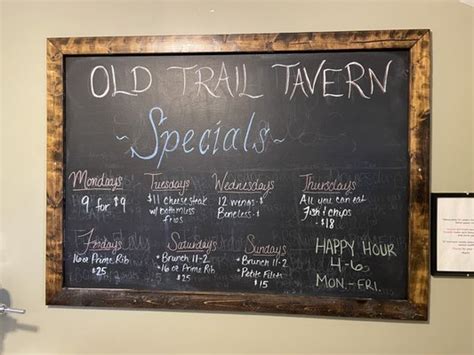 OLD TRAIL TAVERN
~Specials~
Mondays
9 for $9
Tuesdays
$11 cheesesteak
w/ bottomless
fries
Wednesdays
12 wings-$
Boneless-$
Thursdays
All you can eat
Fish & chips
- $18
Fridays
16oz Prime Rib
$25
Saturdays
*Brunch 11-2
*16 oz Prime Rib
$25
Sundays
*Brunch 11-2
*Petite Filet
$15
HAPPY HOUR
4-6
MON.-FRI.